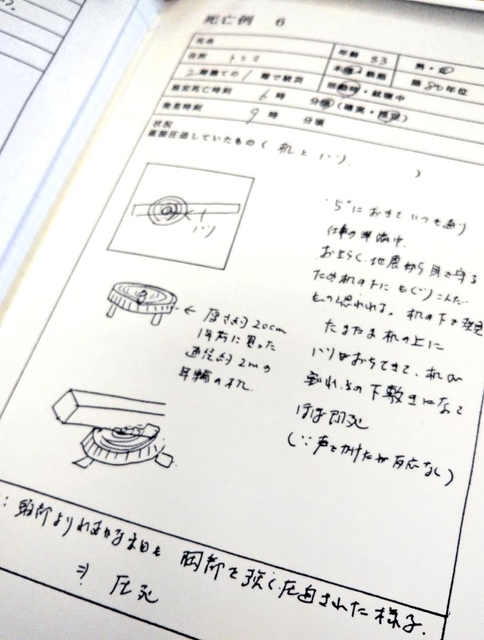 死亡例 6
氏名
住所
年齢 83 男・女
2階建ての1階で被災
木造・鉄筋 築80年位
推定死亡時刻 6時 分頃(確実・推定)
活動時・就寝中
発見時刻 9時 分頃
状況
直接圧迫していたもの( 机とハリ )
ハリ
厚さ約20cm
1年前に買った
直径約2mの
年輪の机
"5"におきていつも通り
仕事の準備中
おそらく、地震から身を守る
ため机の下にもぐりこんだ
ものと思われる。机の下で発見
たまたま机の上に
ハリがおちてきて、机が
割れ、その下敷きになって
ほぼ即死
(∵声をかけたが反応なし)
∵ 胸部を強く圧迫された様子。
⇒ 圧死